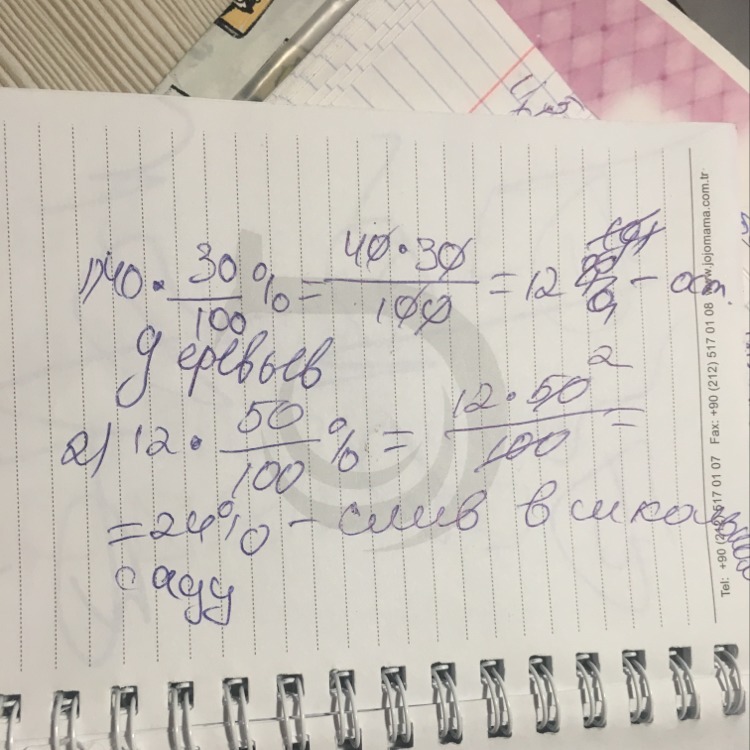 1) 40 · 30/100 % = 40·30/100 = 12 – ост.
деревьев
2) 12 · 50/100 % = 12·50/100 2 =
= 24% – слив в школьн
саду
Tel: +90 (212) 517 01 07 Fax: +90 (212) 517 01 08 www.jojomama.com.tr